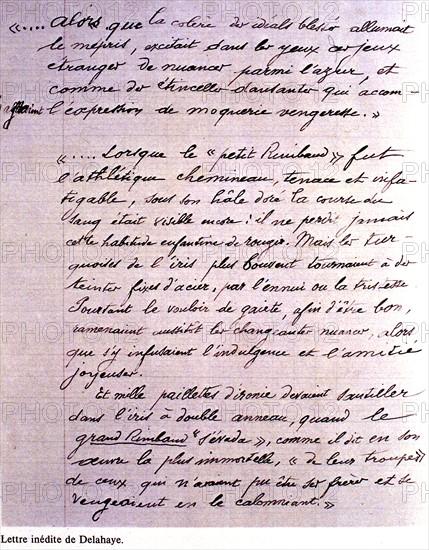 «.... alors que la colère des idéals blessés allumait
le mépris, excitait dans les yeux ces feux
étranges de nuances parmi l'azur, et
comme des étincelles dansantes qui accom-
l'expression de moquerie vengeresse.»
«.... Lorsque le "petit Rimbaud" fut
l'athlétique chemineau, tenace et infa-
tigable, sous son hâle doré la course du
sang était visible encore : il ne perdit jamais
cette habitude enfantine de rougir. Mais les tur-
quoises de l'iris plus souvent tournaient à des
teintes fixes d'acier, par l'ennui ou la tristesse.
Pourtant le vouloir de gaieté, afin d'être bon,
ramenaient aussitôt les changeantes nuances, alors
que s'y infusaient l'indulgence et l'amitié
joyeuses.
Et mille paillettes d'ironie devaient sautiller
dans l'iris à double anneau, quand le
grand Rimbaud "s'évada", comme il dit en son
œuvre la plus immortelle, « de leurs troupes»
de ceux qui n'avaient pu être ses frères et se
vengeaient en le calomniant.»
Lettre inédite de Delahaye.